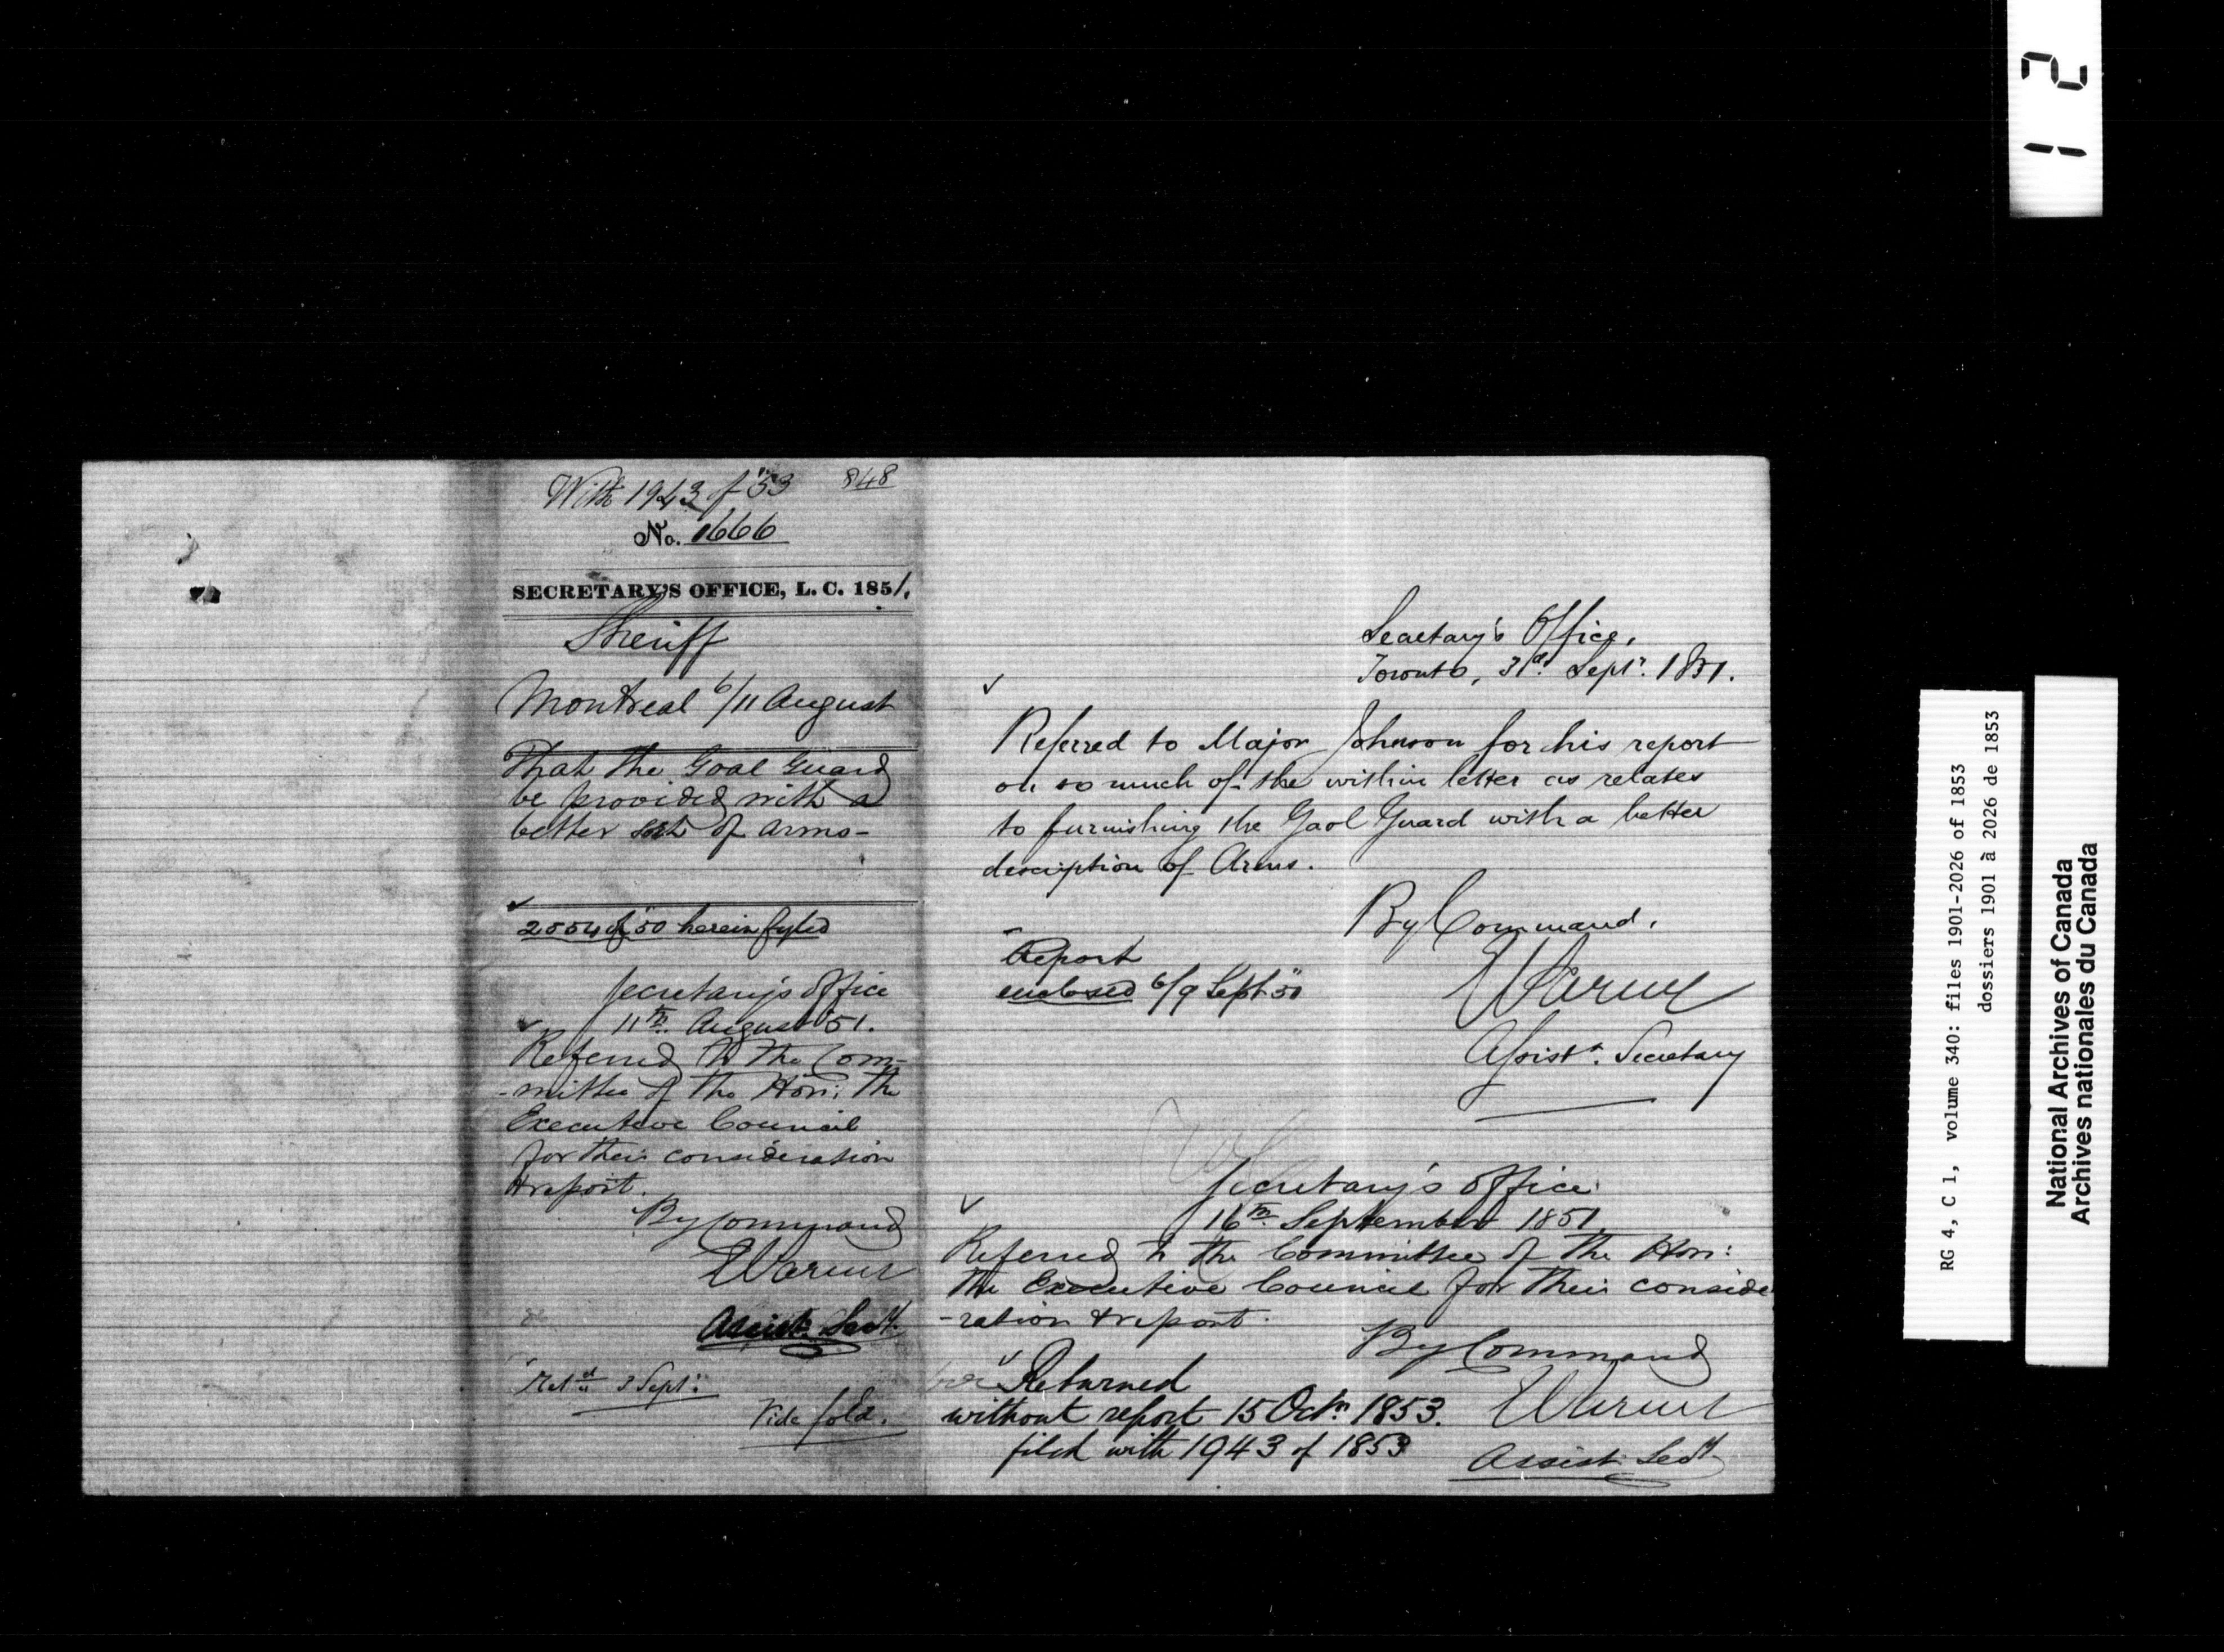 With 1943 of "53 848
No. 1666
SECRETARY'S OFFICE, L. C. 1851.
Sheriff
Montreal 6/11 August
That the Goal Guard
be provided with a
better sort of arms-
2554 of 50 herein fyled
Secretary's Office
11th August '51.
Referred to the Com-
-mittee of the Hon: the
Executive Council
for their consideration
& report.
By Command
Assist. Secy.
Retd 3 Sept:
Vide fold.
Secretary's Office,
Toronto, 3d. Septr. 1851.
Referred to Major Johnson for his report
on so much of the within letter as relates
to furnishing the Gaol Guard with a better
description of Arms.
By Command.
Assistt. Secretary
Report
enclosed 6/9 Sept
Secretary's Office
16th September 1851.
Referred to the Committee of the Hon:
the Executive Council for their conside
-ration & report.
By Command
Assist. Secy.
Returned
without report 15 Octr. 1853.
filed with 1943 of 1853
12
RG 4, C 1, volume 340: files 1901-2026 of 1853
dossiers 1901 à 2026 de 1853
National Archives of Canada
Archives nationales du Canada